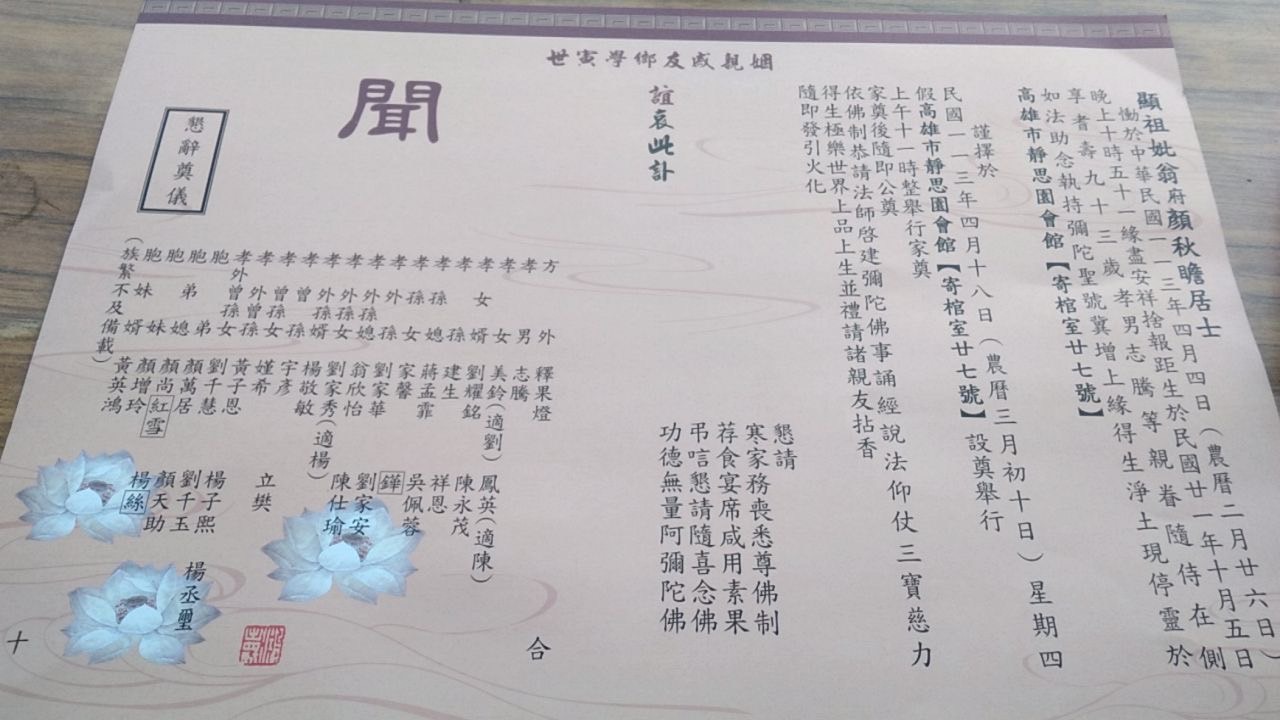 姻親戚友鄉學寅世
顯祖妣翁府顏秋瞻居士
慟於中華民國一一三年四月四日（農曆二月廿六日）
晚上十時五十一緣盡安祥捨報距生於民國廿一年十月五日
享耆壽九十三歲孝男志騰等親眷隨侍在側
如法助念執持彌陀聖號冀增上緣得生淨土現停靈於
高雄市靜思園會館【寄棺室廿七號】
謹擇於
民國一一三年四月十八日（農曆三月初十日）星期四
假高雄市靜思園會館【寄棺室廿七號】設奠舉行
上午十一時整舉行家奠
家奠後隨即公奠
依佛制恭請法師啓建彌陀佛事誦經說法仰仗三寶慈力
得生極樂世界上品上生並禮請諸親友拈香
隨即發引火化
誼哀此訃
懇請
寒家務喪悉尊佛制
荐食宴席咸用素果
弔唁懇請隨喜念佛
功德無量阿彌陀佛
聞
方外 釋果燈
孝男 志騰
孝女 美鈴(適劉) 鳳英(適陳)
孝女婿 劉耀銘 陳永茂
孝孫 建生 祥恩
孝孫媳 蔣孟霏 吳佩蓉
孝孫女 家馨 鏵
孝外孫 劉家華 劉家安
孝外孫媳 翁欣怡
孝外孫女 劉家秀(適楊) 陳仕瑜
孝外孫婿 楊敬敏
孝曾孫 宇彥
孝曾孫女 嫤希 立樊
孝外曾孫 黃子恩 楊子熙 楊丞璽
孝外曾孫女 劉千慧 劉千玉
胞弟 顏萬居 顏天助
胞弟媳 顏尚紅雪 楊絲
胞妹 顏增玲
胞妹婿 黃英鴻
(族繁不及備載)
懇辭奠儀
合十